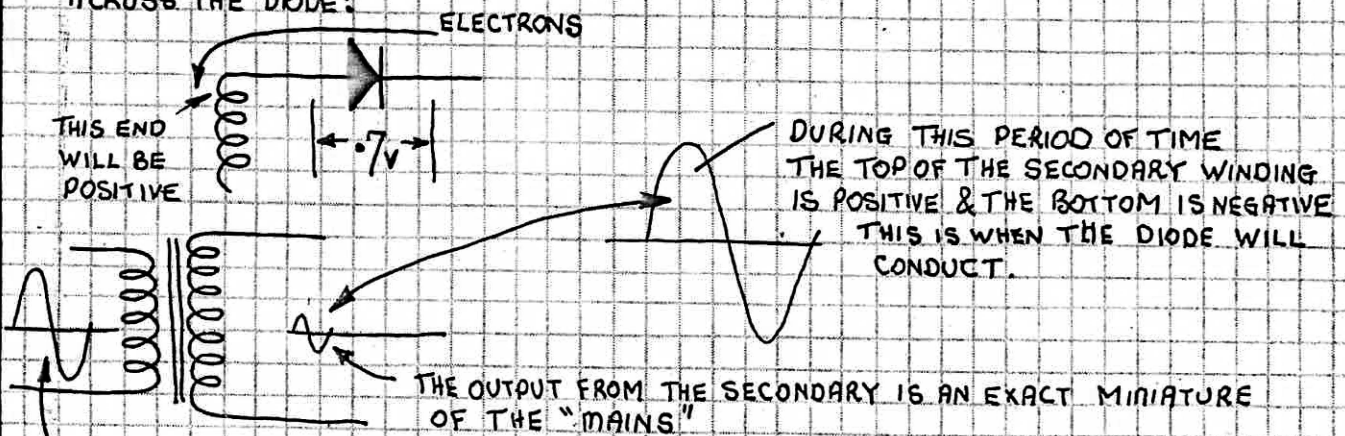 ACROSS THE DIODE.
ELECTRONS
THIS END
WILL BE
POSITIVE
.7v
DURING THIS PERIOD OF TIME
THE TOP OF THE SECONDARY WINDING
IS POSITIVE & THE BOTTOM IS NEGATIVE
THIS IS WHEN THE DIODE WILL
CONDUCT.
THE OUTPUT FROM THE SECONDARY IS AN EXACT MINIATURE
OF THE "MAINS"